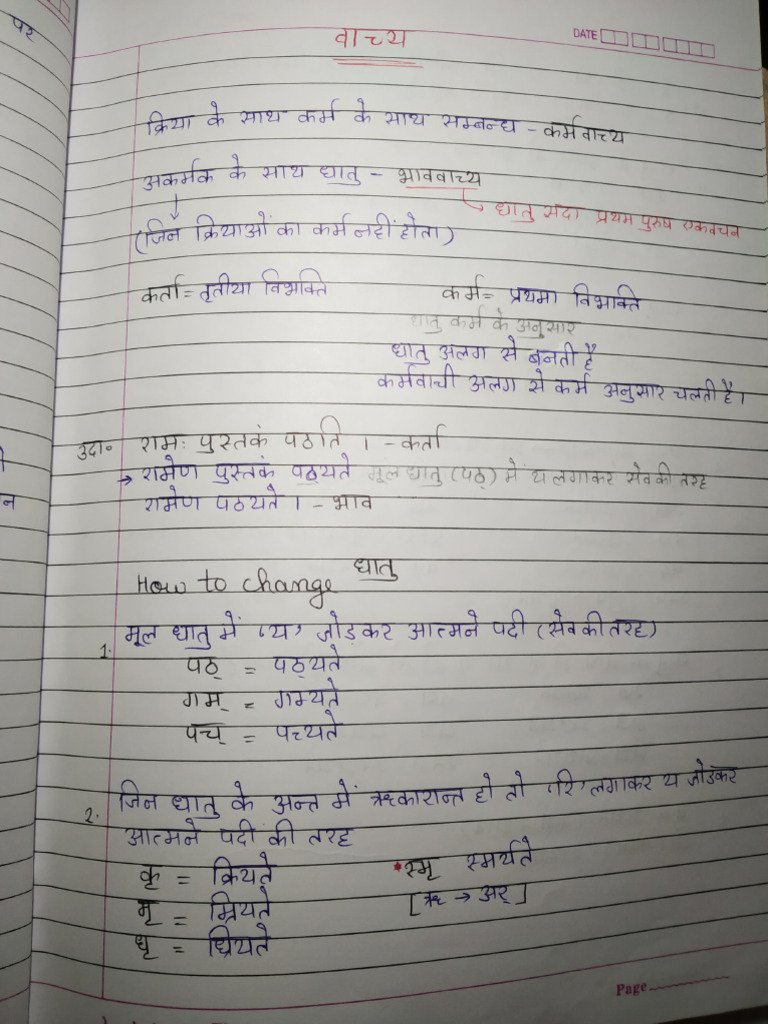 पर
वाच्य
DATE
क्रिया के साथ कर्म के साथ सम्बन्ध - कर्मवाच्य
अकर्मक के साथ धातु - भाववाच्य
↳ धातु सदा प्रथम पुरुष एकवचन
↓
(जिन क्रियाओं का कर्म नहीं होता)
कर्ता = तृतीया विभक्ति कर्म = प्रथमा विभक्ति
धातु कर्म के अनुसार
धातु अलग से बनती है
कर्मवाची अलग से कर्म अनुसार चलती है।
उदा० रामः पुस्तकं पठति । - कर्ता
→ रामेण पुस्तकं पठ्यते मूल धातु (पठ्) में य लगाकर सेव की तरह
रामेण पठयते । - भाव
How to change धातु
1. मूल धातु में 'य' जोड़कर आत्मने पदी (सेव की तरह)
पठ् = पठ्यते
गम् = गम्यते
पच् = पच्यते
2. जिन धातु के अन्त में ऋकारान्त हो तो 'रि' लगाकर य जोडकर
आत्मने पदी की तरह
कृ = क्रियते *स्मृ स्मर्यते
मृ = म्रियते [ऋ → अर्]
धृ = ध्रियते
Page